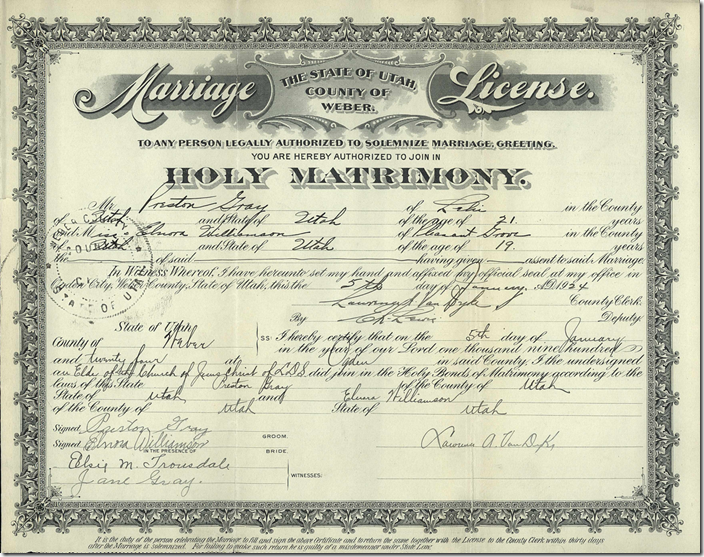 Marriage License.
THE STATE OF UTAH
COUNTY OF
WEBER.
TO ANY PERSON LEGALLY AUTHORIZED TO SOLEMNIZE MARRIAGE, GREETING.
YOU ARE HEREBY AUTHORIZED TO JOIN IN
HOLY MATRIMONY.
Mr. Preston Gray of Lehi in the County
of Utah and State of Utah of the age of 21 years
and Miss Elnora Williamson of Pleasant Grove in the County
of Utah and State of Utah of the age of 19 years
the of said having given assent to said Marriage
In Witness Whereof, I have hereunto set my hand and affixed my official seal at my office in
Ogden City, Weber County, State of Utah, this the 5th day of January, A.D. 1924
County Clerk.
By Deputy.
State of Utah
County of Weber ss: I hereby certify that on the 5th day of January
in the year of our Lord one thousand nine hundred
and twenty four at Ogden in said County, I the undersigned
an Elder of the Church of Jesus Christ of L.D.S. did join in the Holy Bonds of Matrimony according to the
laws of this State Preston Gray of the County of Utah
State of Utah and Elnora Williamson
of the County of Utah State of Utah
Signed Preston Gray GROOM.
Signed Elnora Williamson BRIDE.
IN THE PRESENCE OF
Elsie M. Trousdale
Jane Gray. WITNESSES:
Lawrence A. Van Dyke
It is the duty of the person celebrating the Marriage to fill and sign the above Certificate and to return the same together with the License to the County Clerk within thirty days
after the Marriage is solemnized. For failing to make such return he is guilty of a misdemeanor under State Law.